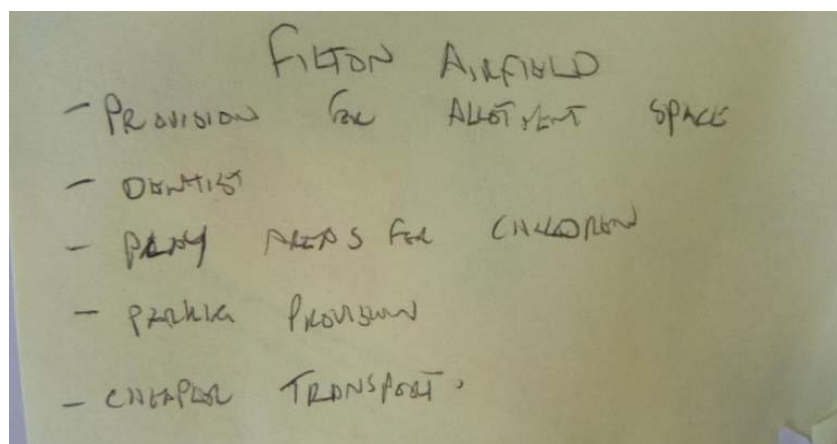 FILTON AIRFIELD
- PROVISION FOR ALLOTMENT SPACE
- DENTIST
- PLAY AREAS FOR CHILDREN
- PARKING PROVISION
- CHEAPER TRANSPORT.